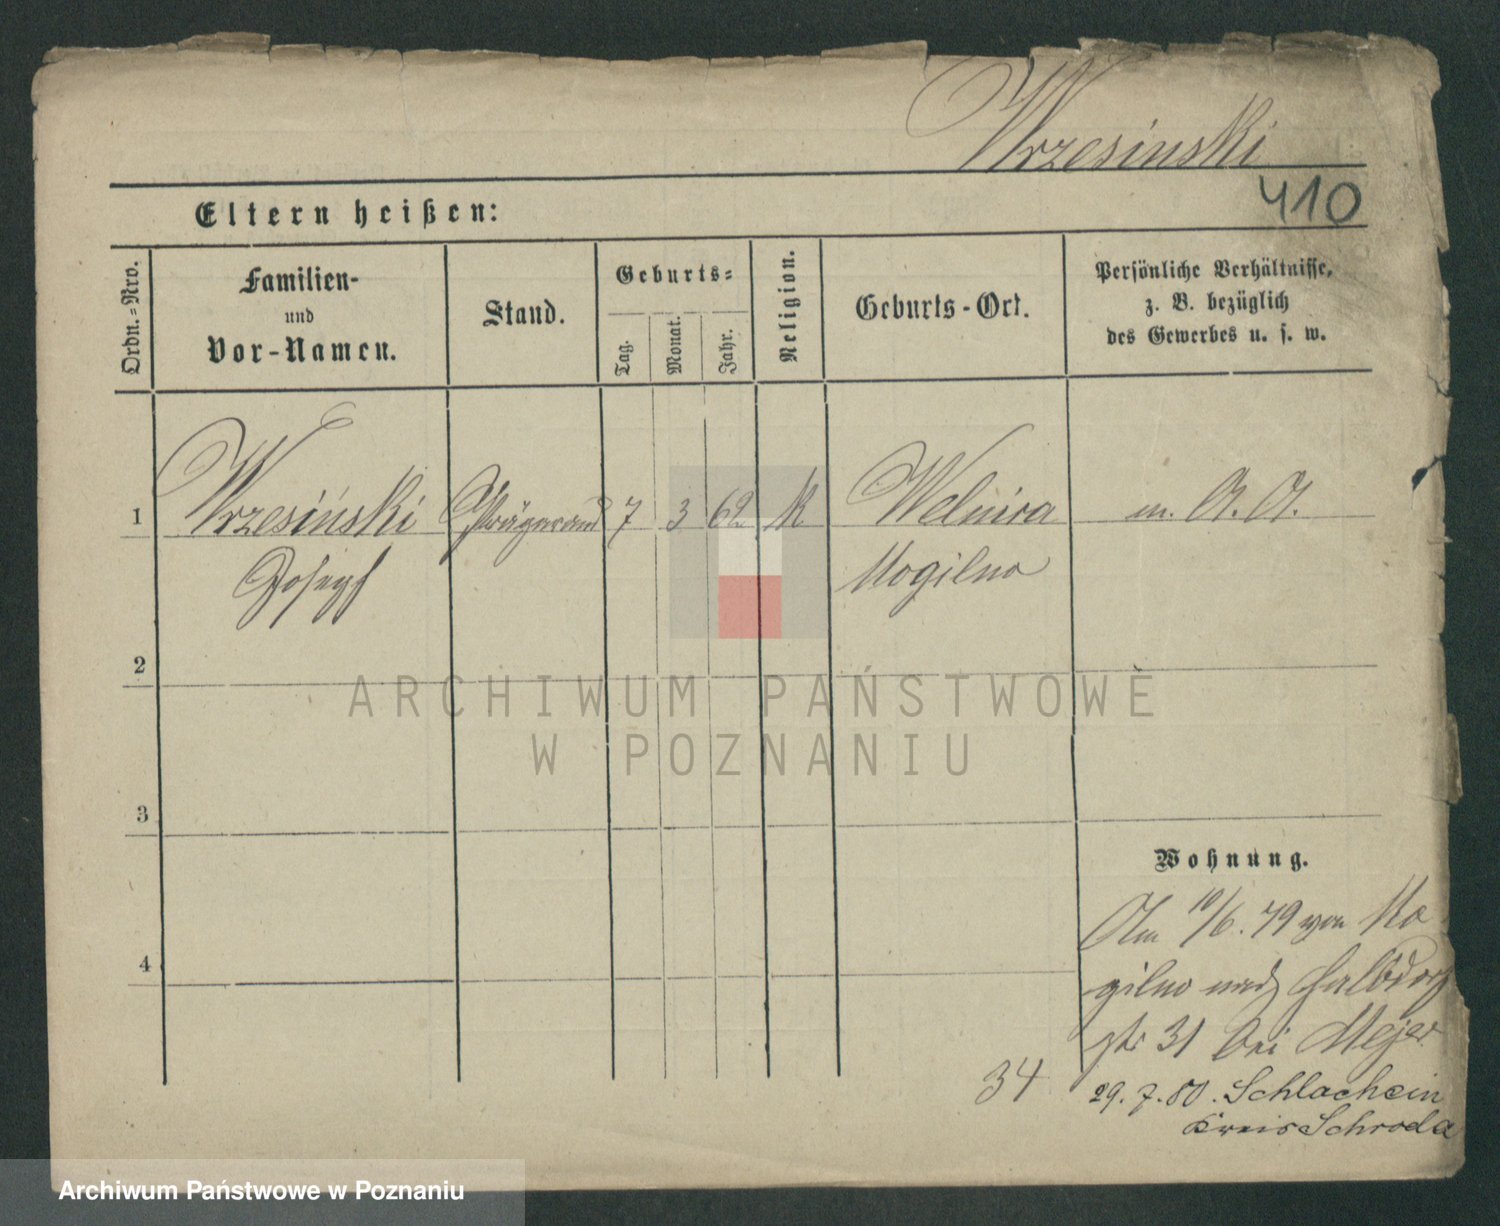 Wrzesinski
410
Eltern heißen:
Ordn.=Nro.
Familien-
und
Vor-Namen.
Stand.
Geburts=
Tag.
Monat.
Jahr.
Religion.
Geburts-Ort.
Persönliche Verhältnisse,
z. B. bezüglich
des Gewerbes u. s. w.
1 Wrzesiński 7 3 62 K m. A. A.
Joseph Mogilno
2
3
4
Wohnung.
Am 10/6. 79 von Mo
gilno nach Halbdorf
str 31 bei Mejer
34
29. 7. 80. Schlachcin
Kreis Schroda
ARCHIWUM PAŃSTWOWE
W POZNANIU
Archiwum Państwowe w Poznaniu